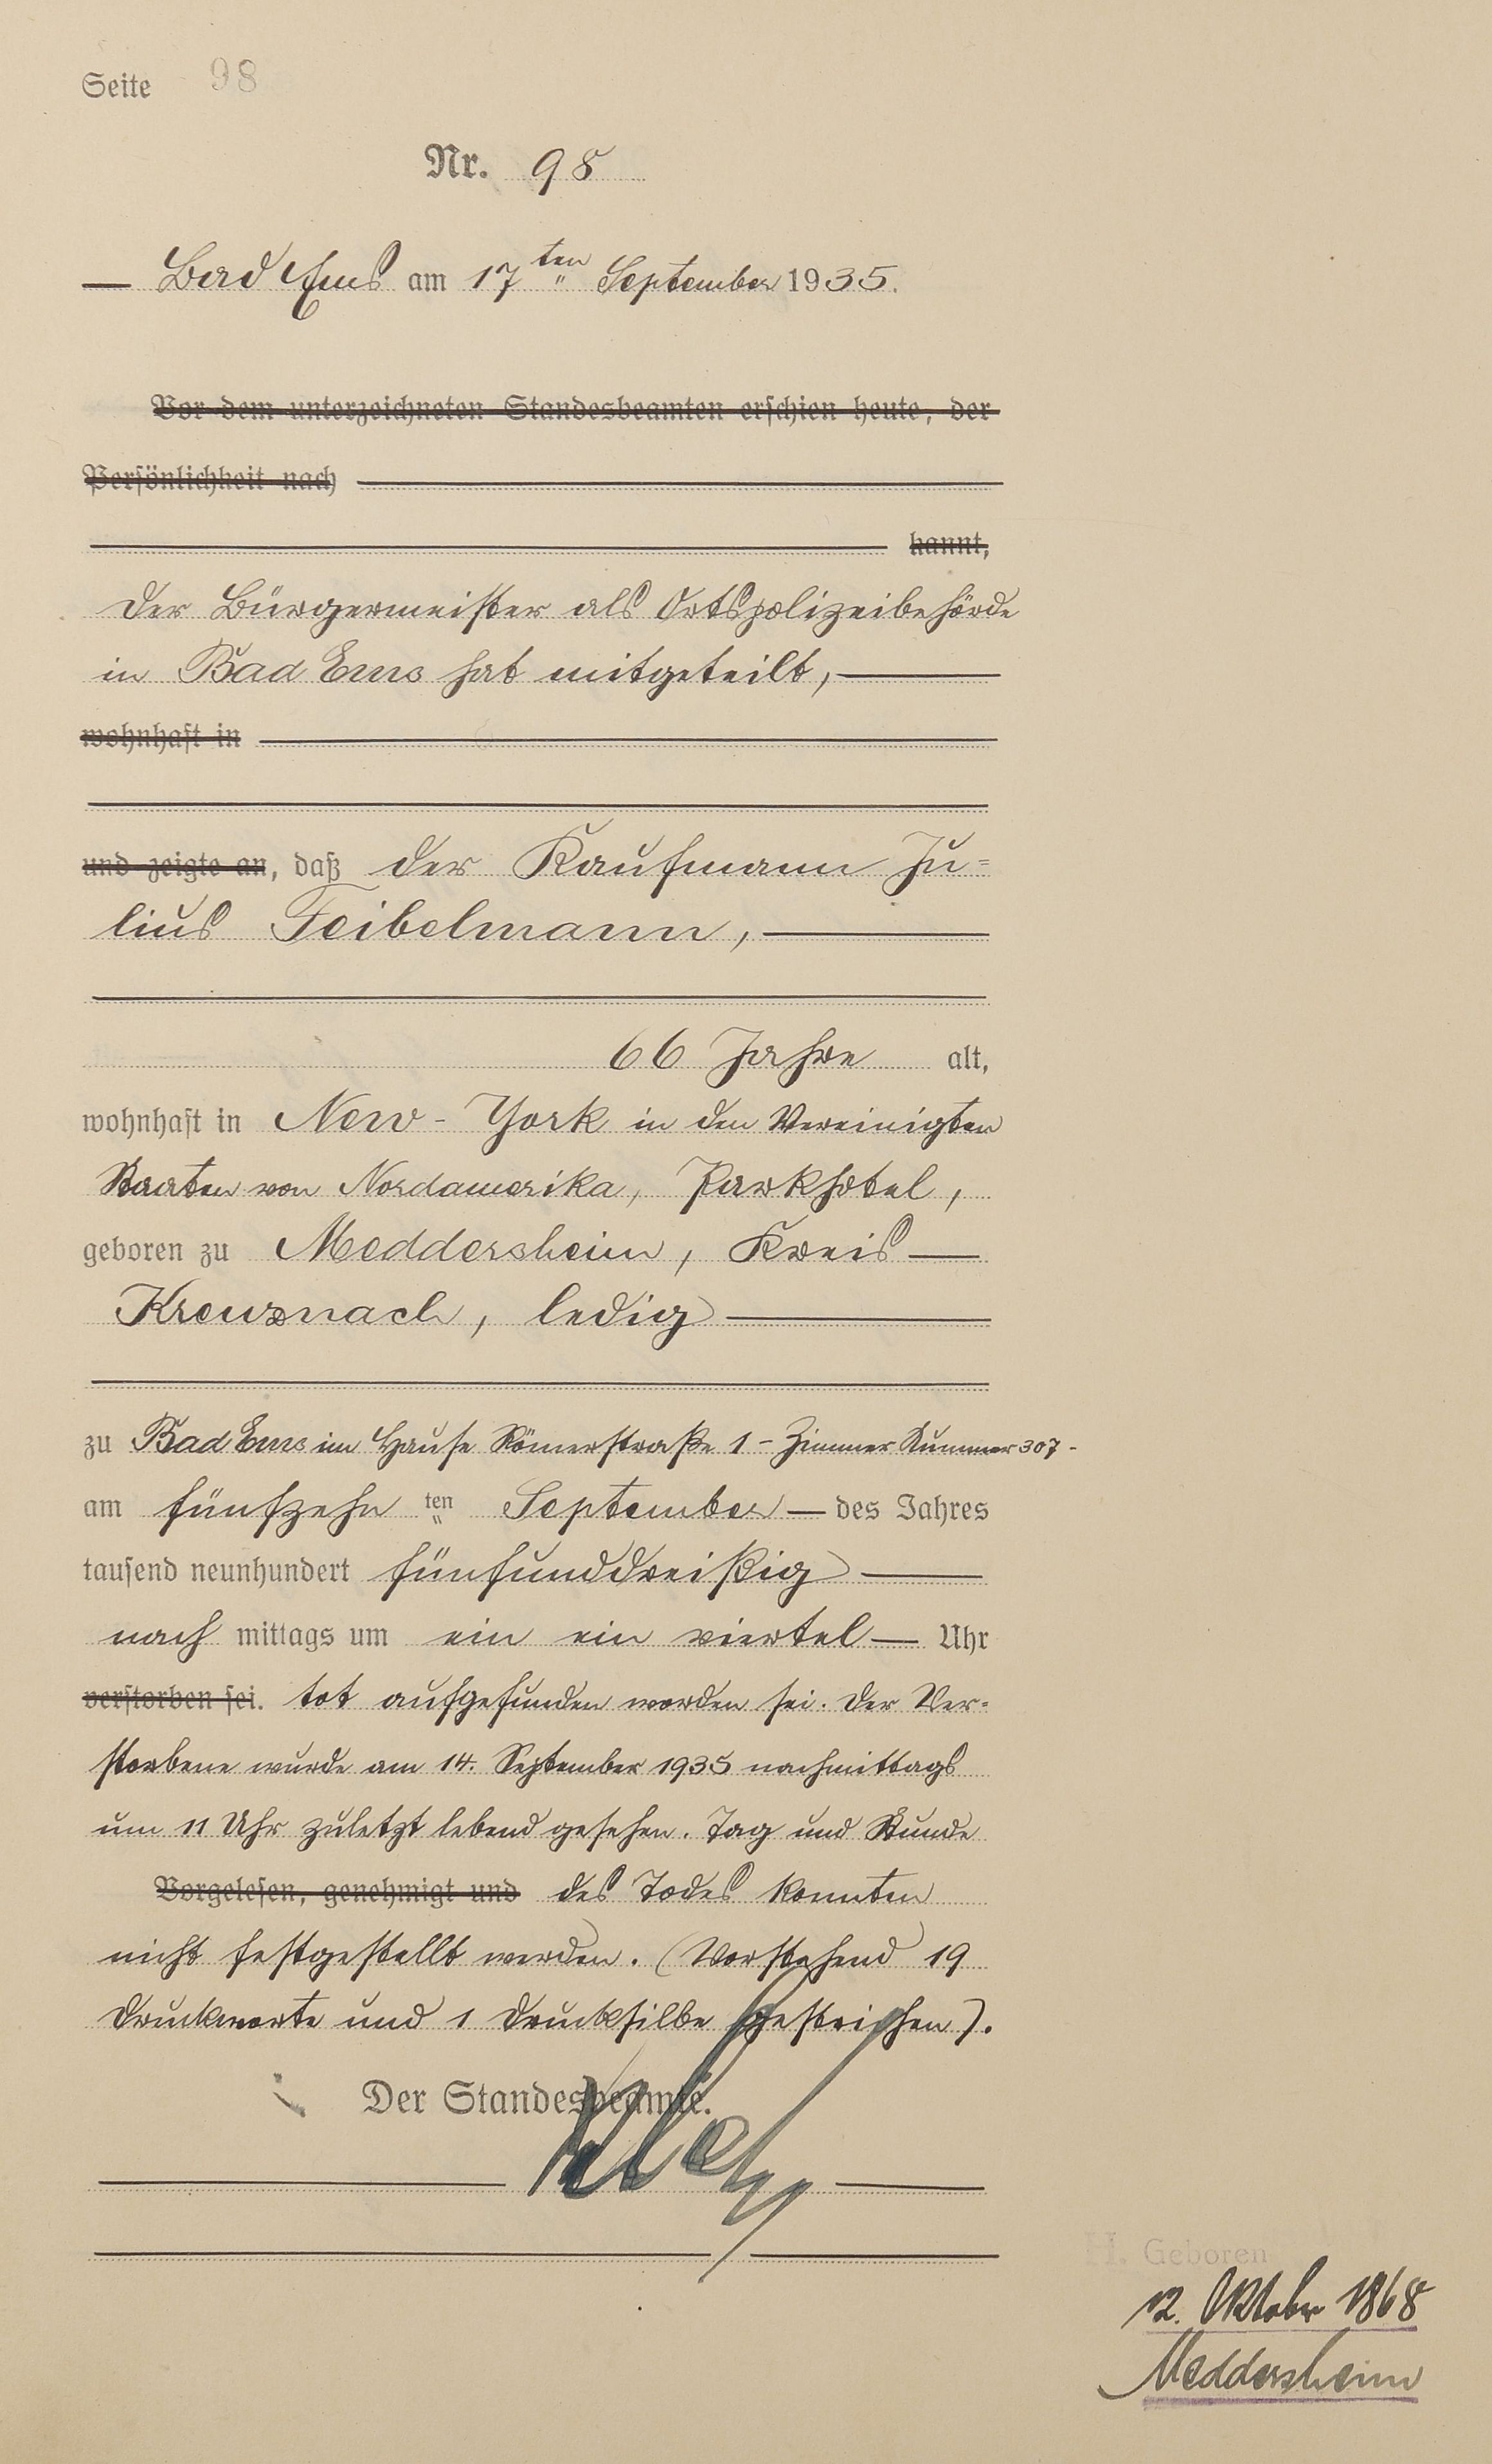 Seite 98
Nr. 98
Bad Ems am 17ten September 1935.
Vor dem unterzeichneten Standesbeamten erschien heute, der
Persönlichkeit nach
kannt,
Der Bürgermeister als Ortspolizeibehörde
in Bad Ems hat mitgeteilt,
wohnhaft in
und zeigte an, daß der Kaufmann Ju=
lius Feibelmann,
66 Jahre alt,
wohnhaft in New-York in den Vereinigten
Staaten von Nordamerika, Parkhotel,
geboren zu Meddersheim, Kreis
Kreuznach, ledig
zu Bad Ems im Hause Römerstraße 1 - Zimmer Nummer 307 -
am fünfzehn ten September des Jahres
tausend neunhundert fünfunddreißig
nach mittags um ein ein viertel Uhr
verstorben sei. tot aufgefunden worden sei. Der Ver=
storbene wurde am 14. September 1935 nachmittags
um 11 Uhr zuletzt lebend gesehen. Tag und Stunde
Vorgelesen, genehmigt und des Todes konnten
nicht festgestellt werden. (Vorstehend 19
Druckworte und 1 Drucksilbe gestrichen).
Der Standesbeamte.
H. Geboren
12. Oktober 1868
Meddersheim